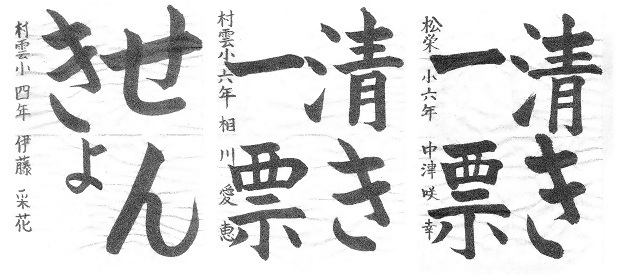 せん
きょ
村雲小 四年 伊藤 采花
清き
一票
村雲小六年 相川 愛恵
清き
一票
松栄小六年 中津咲幸